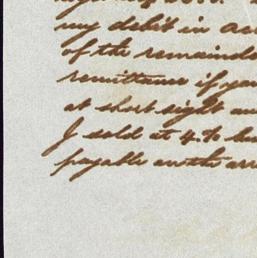 my debit in
of the remainde
remittance if you
at short sight
I sold at 4.%
payable on the arr